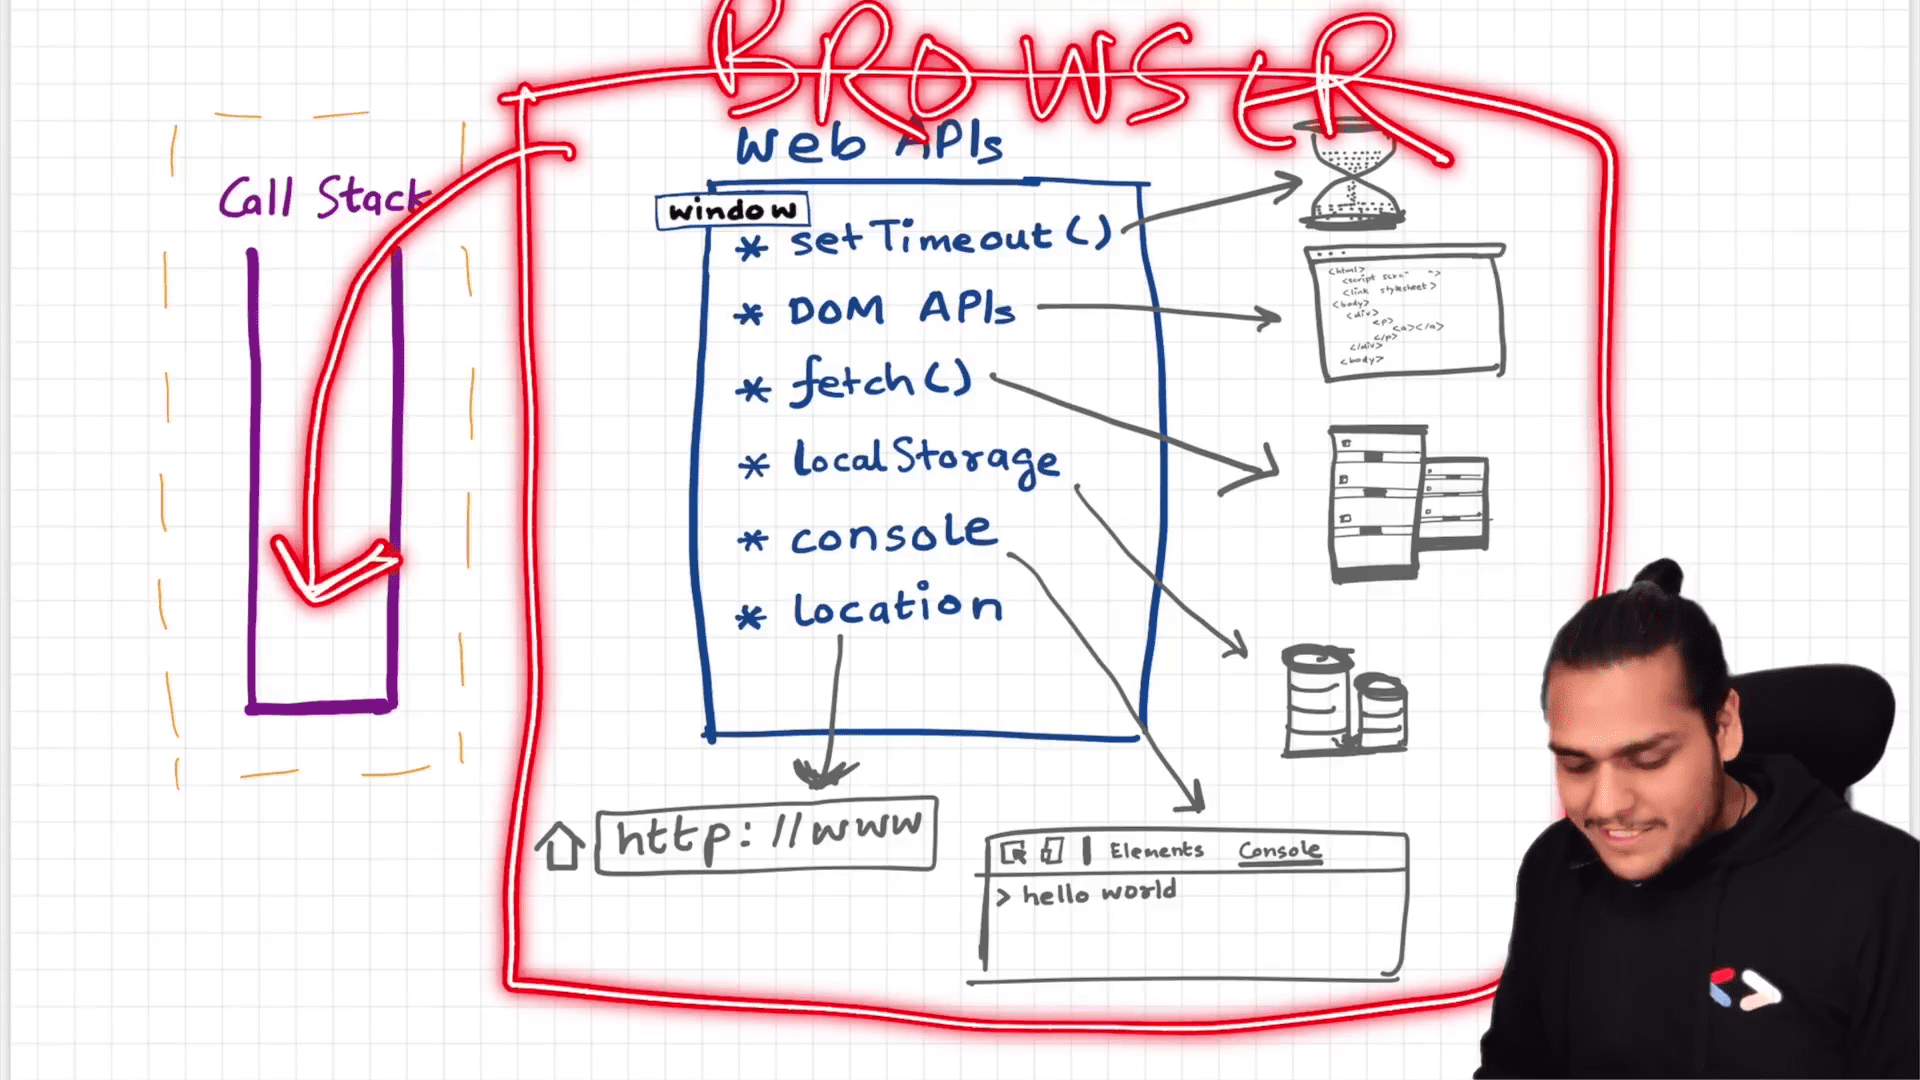 BROWSER
Web APIs
Call Stack
window
* setTimeout()
* DOM APIs
* fetch()
* localStorage
* console
* location
<html>
<link stylesheet>
<body>
<div>
<p>
<a></a>
</p>
</div>
<body>
http://www
Elements Console
> hello world